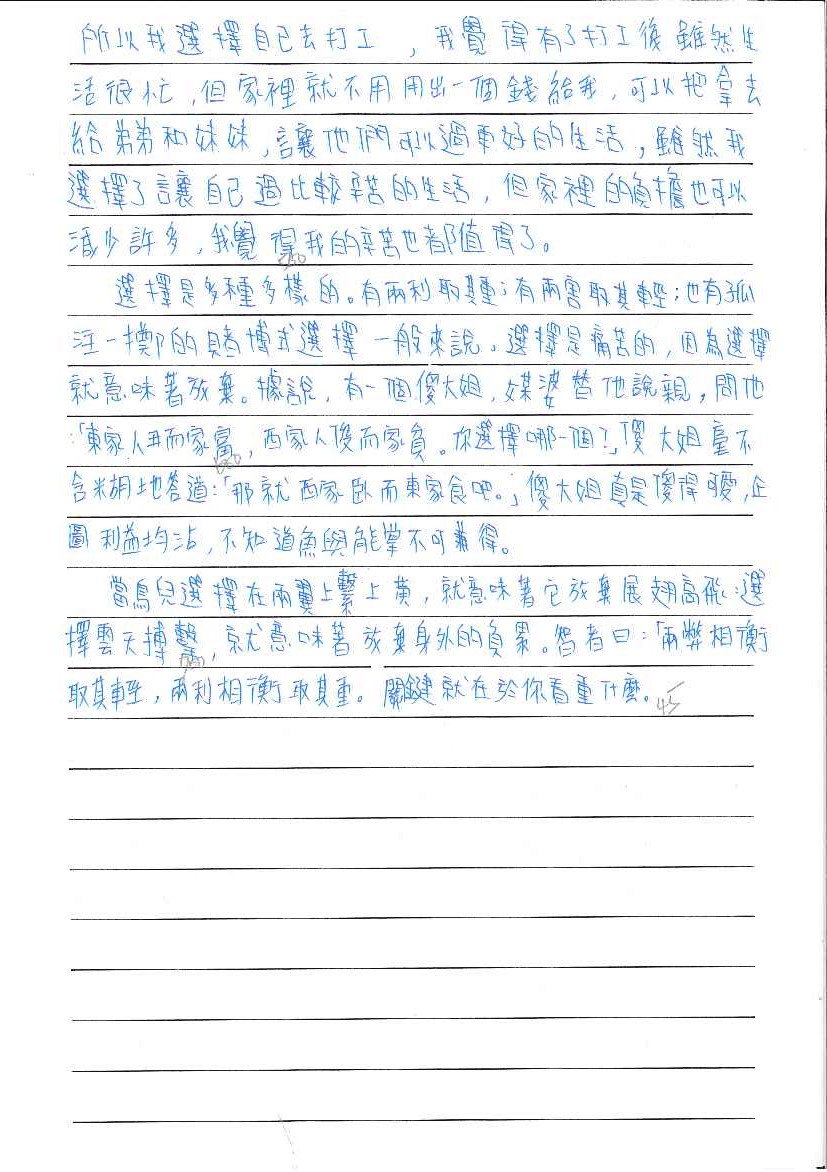 所以我選擇自己去打工，我覺得有了打工後雖然生
活很忙，但家裡就不用用出一個錢給我，可以把拿去
給弟弟和妹妹，讓他們可以過更好的生活，雖然我
選擇了讓自己過比較辛苦的生活，但家裡的負擔也可以
減少許多，我覺得我的辛苦也都值得了。
選擇是多種多樣的。有兩利取其重；有兩害取其輕；也有孤
注一擲的賭博式選擇一般來說。選擇是痛苦的，因為選擇
就意味著放棄。據說，有一個傻大姐，媒婆替他說親，問他
：「東家人丑而家富，西家人俊而家貧。你選擇哪一個？」傻大姐毫不
含糊地答道：「那就西家臥而東家食吧。」傻大姐真是傻得可愛，企
圖利益均沾，不知道魚與熊掌不可兼得。
當鳥兒選擇在兩翼上繫上黃，就意味著它放棄展翅高飛；選
擇雲天搏擊，就意味著放棄身外的負累。智者曰：「兩弊相衡
取其輕，兩利相衡取其重。關鍵就在於你看重什麼。
45